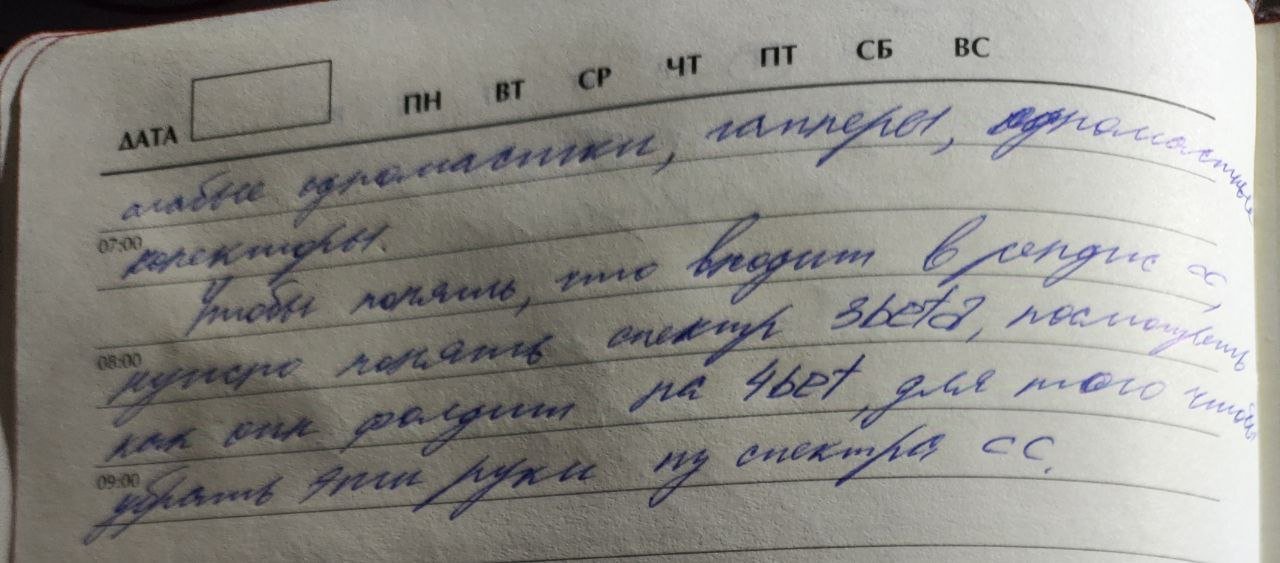 ДАТА ПН ВТ СР ЧТ ПТ СБ ВС
слабые одномастки, гапперы, одномастные
07:00
конекторы.
Чтобы понять, что входит в сс,
08:00
нужно понять спектр 3betа, посмотреть
как опп фолдит на 4bet, для того чтобы
09:00
убрать эти руки из спектра сс.